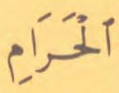 اَلْحَرَامِ